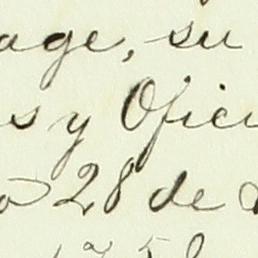 age, su
s y Ofici
28 de